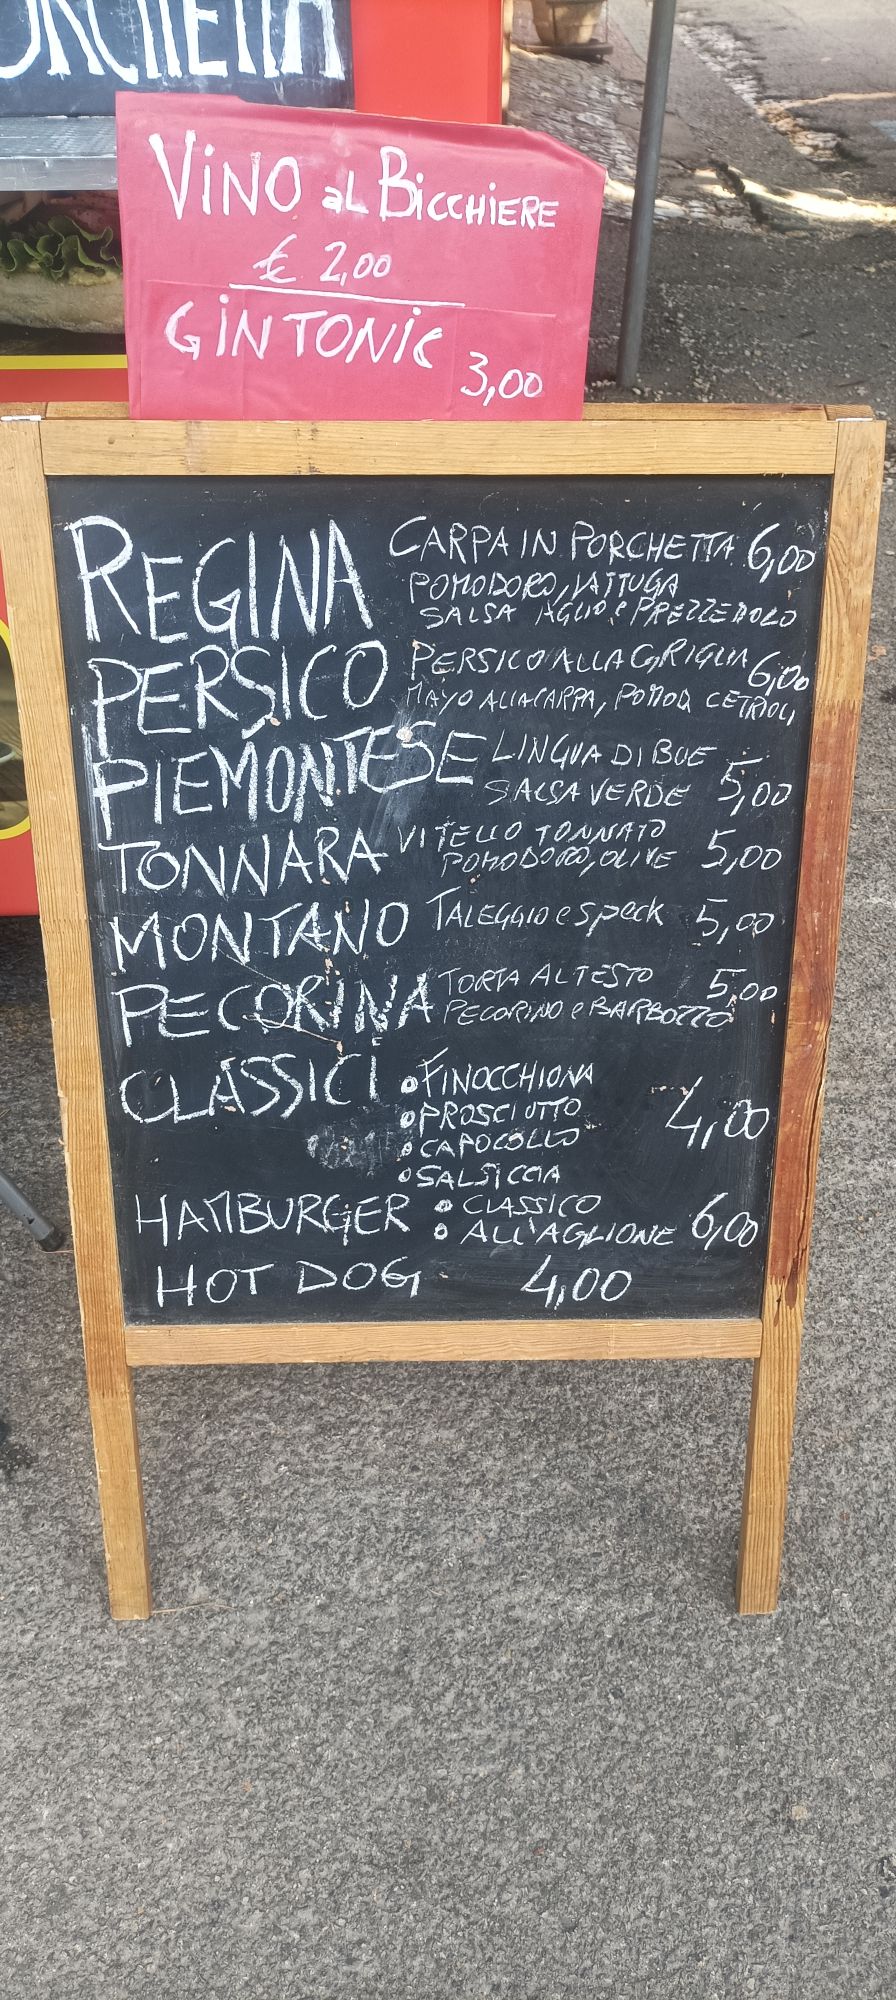 ORCHETTA
VINO aL BICCHIERE
€ 2,00
GINTONIC
3,00
REGINA CARPA IN PORCHETTA 6,00
POMODORO, LATTUGA
SALSA AGLIO e PREZZEMOLO
PERSICO PERSICO ALLA GRIGLIA 6,00
MAYO ALLA CARPA, POMOD. CETRIOLI
PIEMONTESE LINGUA DI BUE
SALSA VERDE 5,00
TONNARA VITELLO TONNATO
POMODORO, OLIVE 5,00
MONTANO TALEGGIO e SPECK 5,00
PECORINA TORTA AL TESTO 5,00
PECORINO e BARBOZZO
CLASSICI • FINOCCHIONA
• PROSCIUTTO 4,00
• CAPOCOLLO
• SALSICCIA
HAMBURGER • CLASSICO
• ALL'AGLIONE 6,00
HOT DOG 4,00